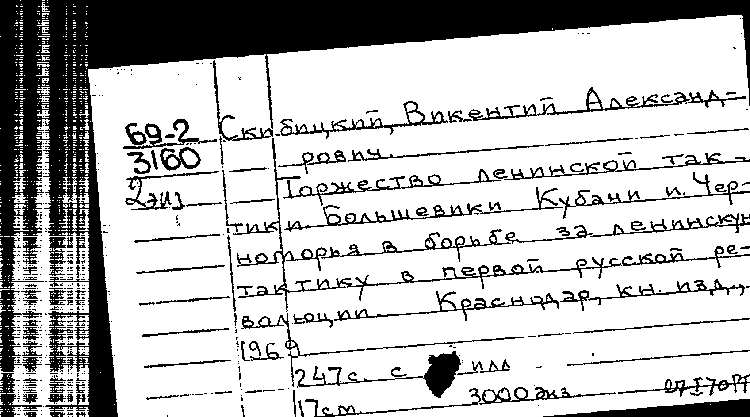 69-2
3160
2 экз
Скибицкий, Викентий Александ-
рович.
Торжество ленинской так-
тики. Большевики Кубани и Чер-
номорья в борьбе за ленинскую
тактику в первой русской ре-
валюции. Краснодар, кн. изд.,
1969
247 с. с илл
17 см. 3000 экз. 27 I 70